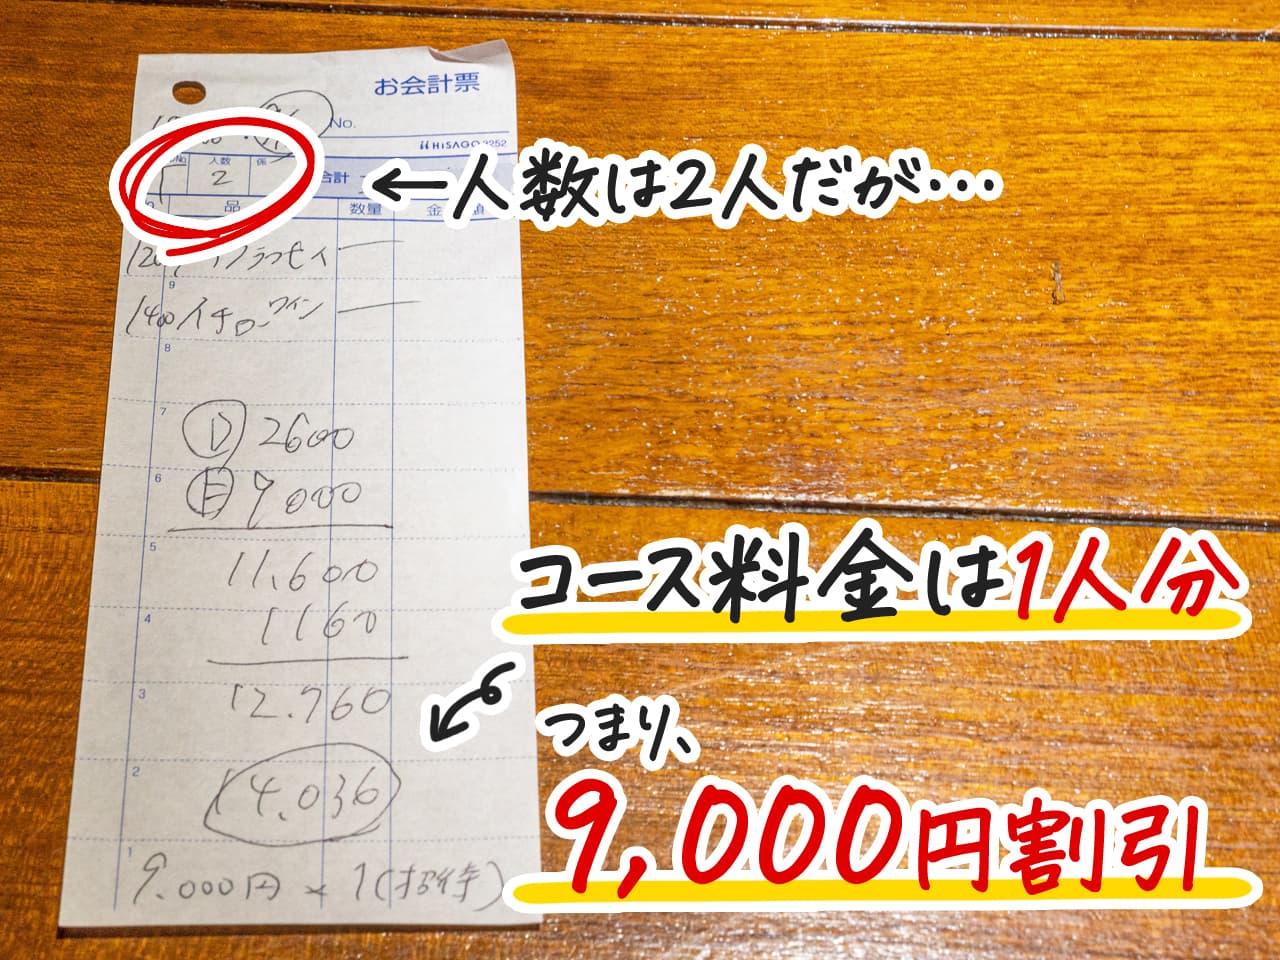 お会計票
No.
HISAGO 2252
No 人数 係
2
合計
←人数は2人だが…
品 数量 金 額
9
1400 イチローワイン
8
7
Ⓓ 2600
6
Ⓔ 9000
5
11,600
コース料金は1人分
4
1160
3
12.760
つまり、
2
14.036
9,000円割引
1
9.000円×1(招待)